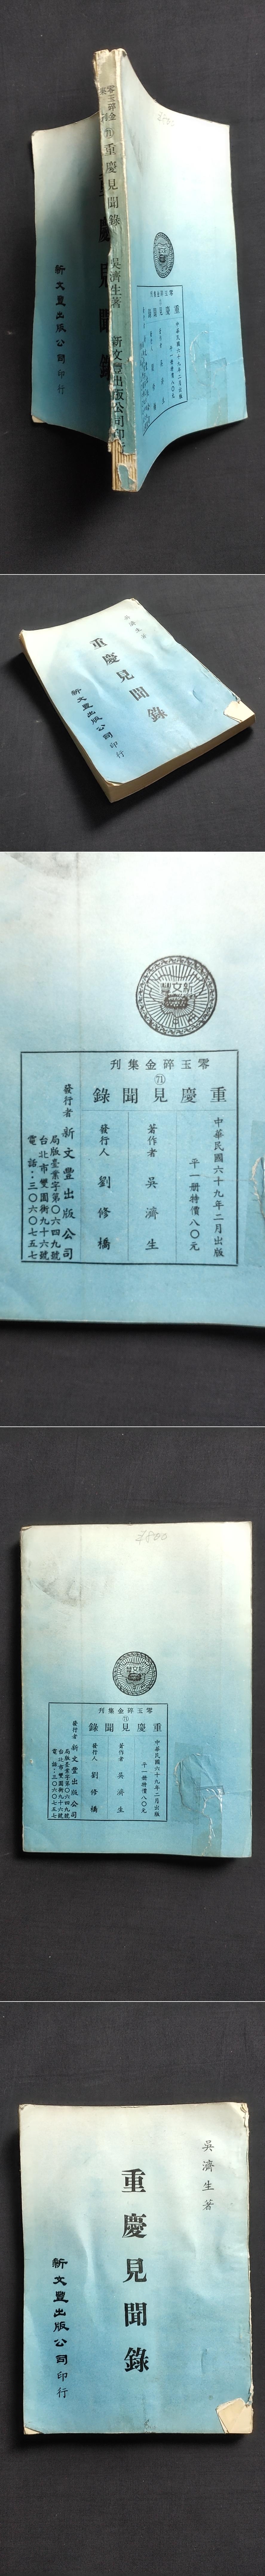 零玉碎金集刊
71
重慶見聞錄
吳濟生著
新文豐出版公司印行
新文豐出版公司印行
零玉碎金集刊
71
重慶見聞錄
中華民國六十九年二月出版
吳濟生著
重慶見聞錄
新文豐出版公司印行
新文豐
零玉碎金集刊
71
重慶見聞錄
中華民國六十九年二月出版
平一册特價八〇元
著作者 吳濟生
發行人 劉修橋
發行者 新文豐出版公司
局版臺業字第〇六四九號
台北市雙園街九十六號
電話：三〇六〇七五七
新文豐
零玉碎金集刊
71
重慶見聞錄
中華民國六十九年二月出版
平一册特價八〇元
著作者 吳濟生
發行人 劉修橋
發行者 新文豐出版公司
局版臺業字第〇六四九號
台北市雙園街九十六號
電話：三〇六〇七五七
吳濟生著
重慶見聞錄
新文豐出版公司印行